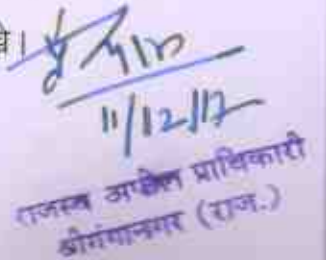 वे।
11/12/17
राजस्व अपील प्राधिकारी
श्रीगंगानगर (राज.)